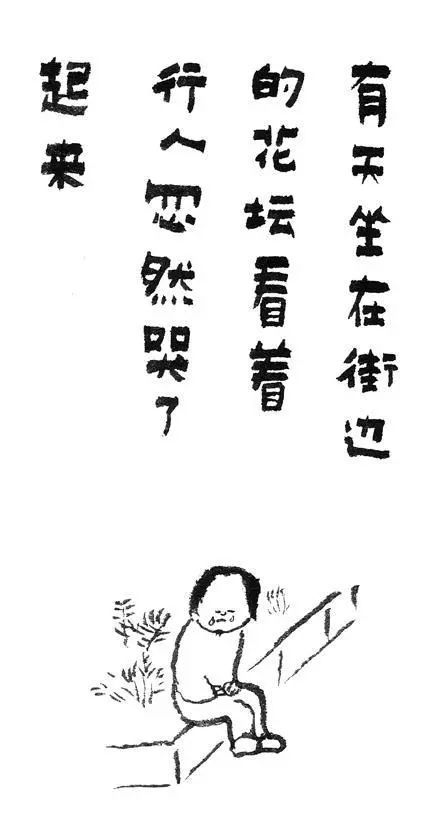 有天坐在街边
的花坛看着
行人忽然哭了
起来